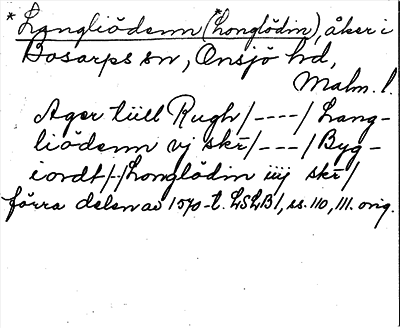 *Langliödenn (*Longlödin), åker i
Bosarps sn, Onsjö hd,
Malm. l.
Ager tiill Rugh/----/Lang-
liödenn vj skr/---/Byg-
iordt/-/Longlödin iiij skr/
förra delen av 1570-t. LSLB1, ss. 110, 111. orig.